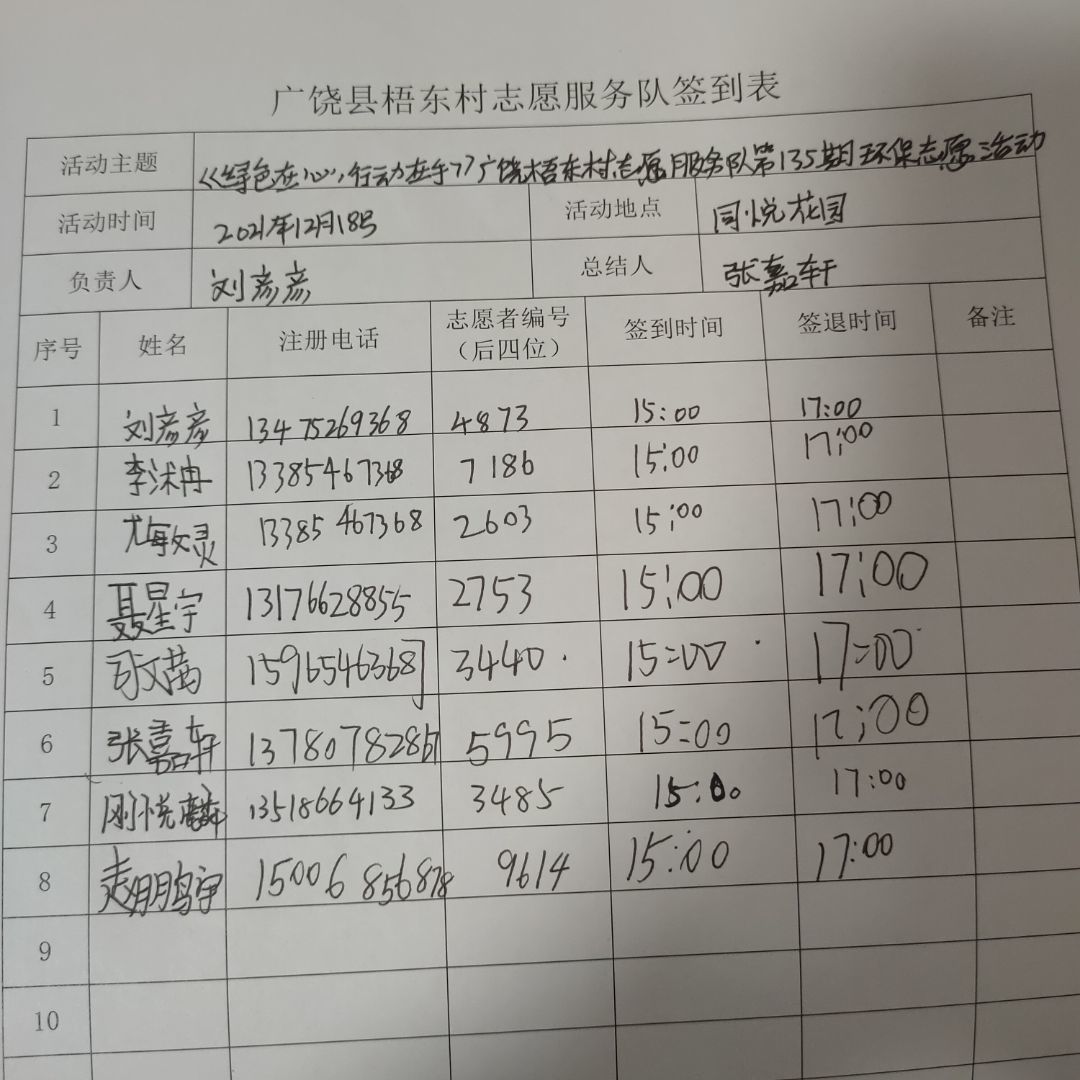 广饶县梧东村志愿服务队签到表
活动主题 《绿色在心,行动在手》广饶梧东村志愿服务队第135期环保志愿活动
活动时间 2021年12月18号 活动地点 同悦花园
负责人 刘彦彦 总结人 张嘉轩
序号 姓名 注册电话 志愿者编号（后四位） 签到时间 签退时间 备注
1 刘彦彦 13475269368 4873 15:00 17:00
2 李沭冉 13385467368 7186 15:00 17:00
3 尤敏灵 13385467368 2603 15:00 17:00
4 聂星宇 13176628855 2753 15:00 17:00
5 司文茜 15965463687 3440 15:00 17:00
6 张嘉轩 13780782867 5995 15:00 17:00
7 刚悦麟 13518664133 3485 15:00 17:00
8 15006856878 9614 15:00 17:00
9
10